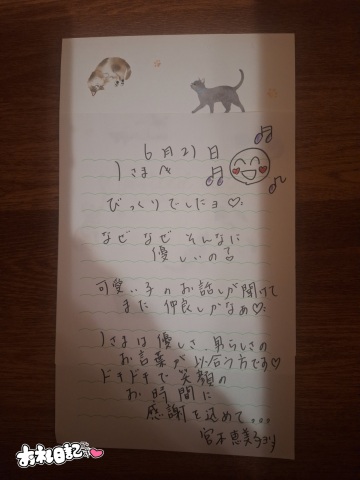 6月21日
Iさまへ
びっくりでしたョ♡
なぜ なぜ そんなに
優しいの?
可愛い子のお話しが聞けて
また 仲良しかなぁ♡
Iさまは優しさ 男らしさの
お言葉が似合う方です♡
ドキドキで笑顔の
お時間に
感謝を込めて....
宮木恵美子より
お礼日記